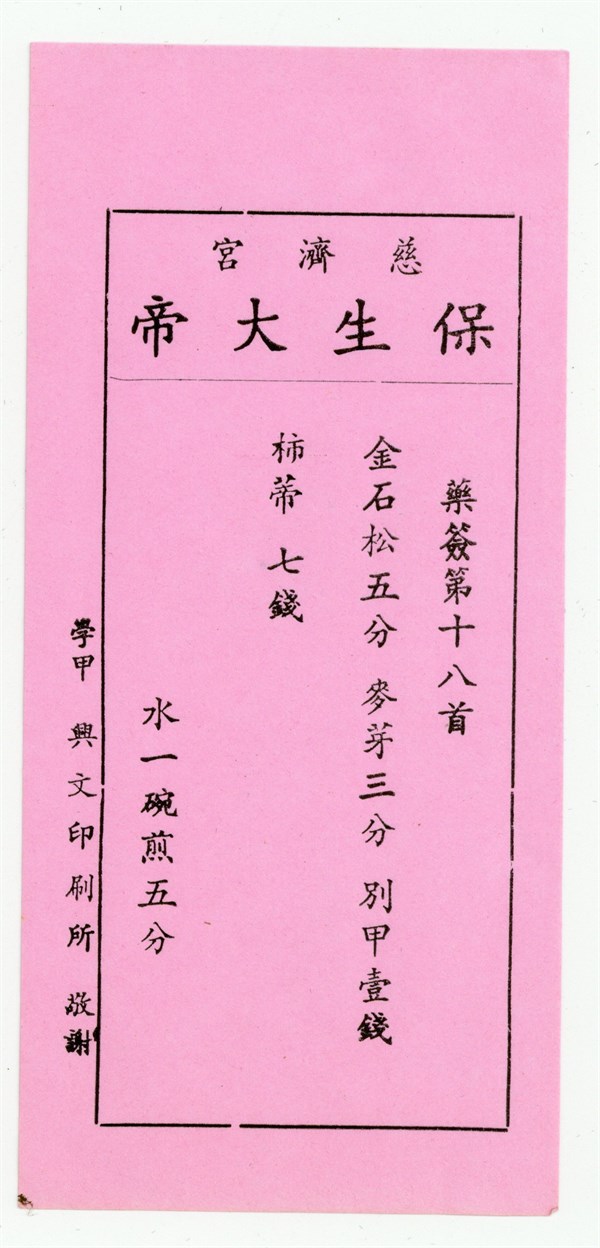 慈濟宮
保生大帝
藥簽第十八首
金石松五分 麥芽三分 別甲壹錢
柿蒂 七錢
水一碗煎五分
學甲 興文印刷所 敬謝